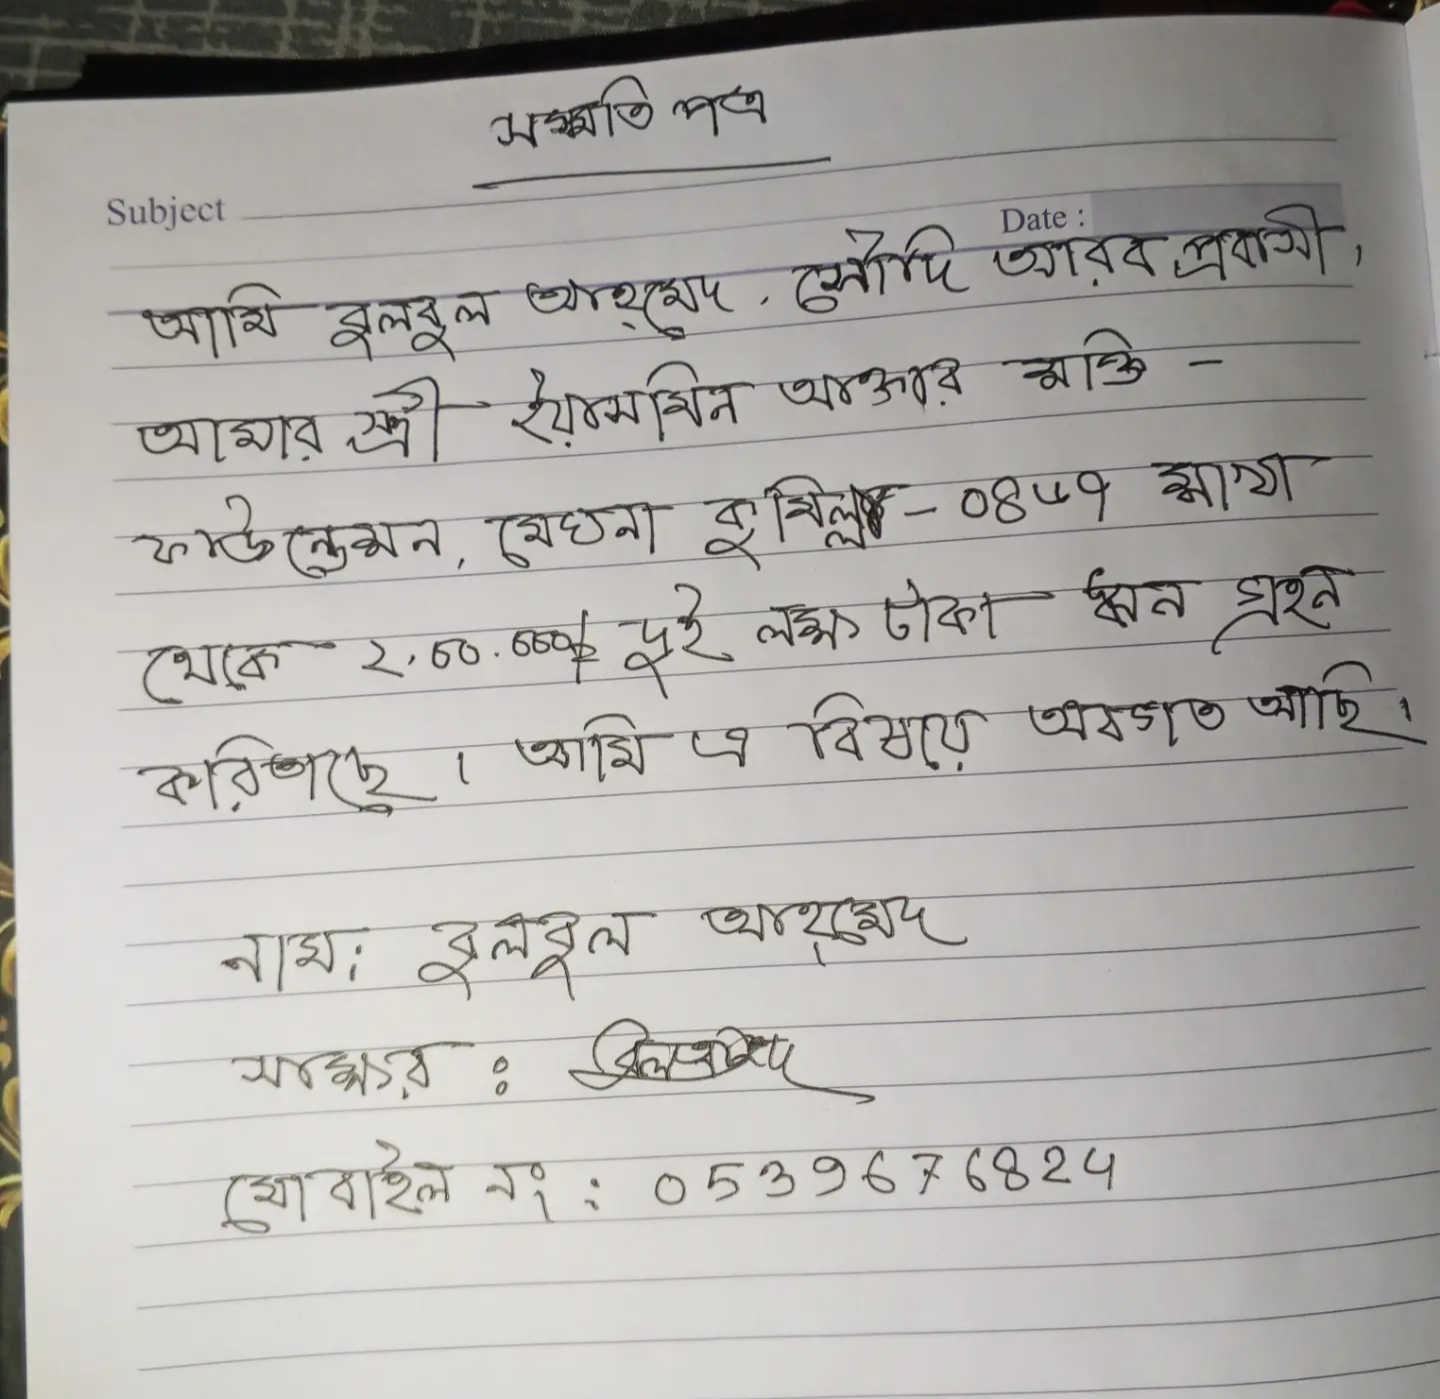 সম্মতি পত্র
Subject
Date :
আমি বুলবুল আহ্মেদ, সৌদি আরব প্রবাসী,
আমার স্ত্রী ইয়াসমিন আক্তার শক্তি -
ফাউন্ডেশন, মেঘনা কুমিল্লা - ০৪৮৭ শাখা
থেকে ২,০০,০০০/= দুই লক্ষ টাকা ঋন গ্রহন
করিতাছে। আমি এ বিষয়ে অবগত আছি।
নাম: বুলবুল আহ্মেদ
সাক্ষর :
মোবাইল নং : 0539676824